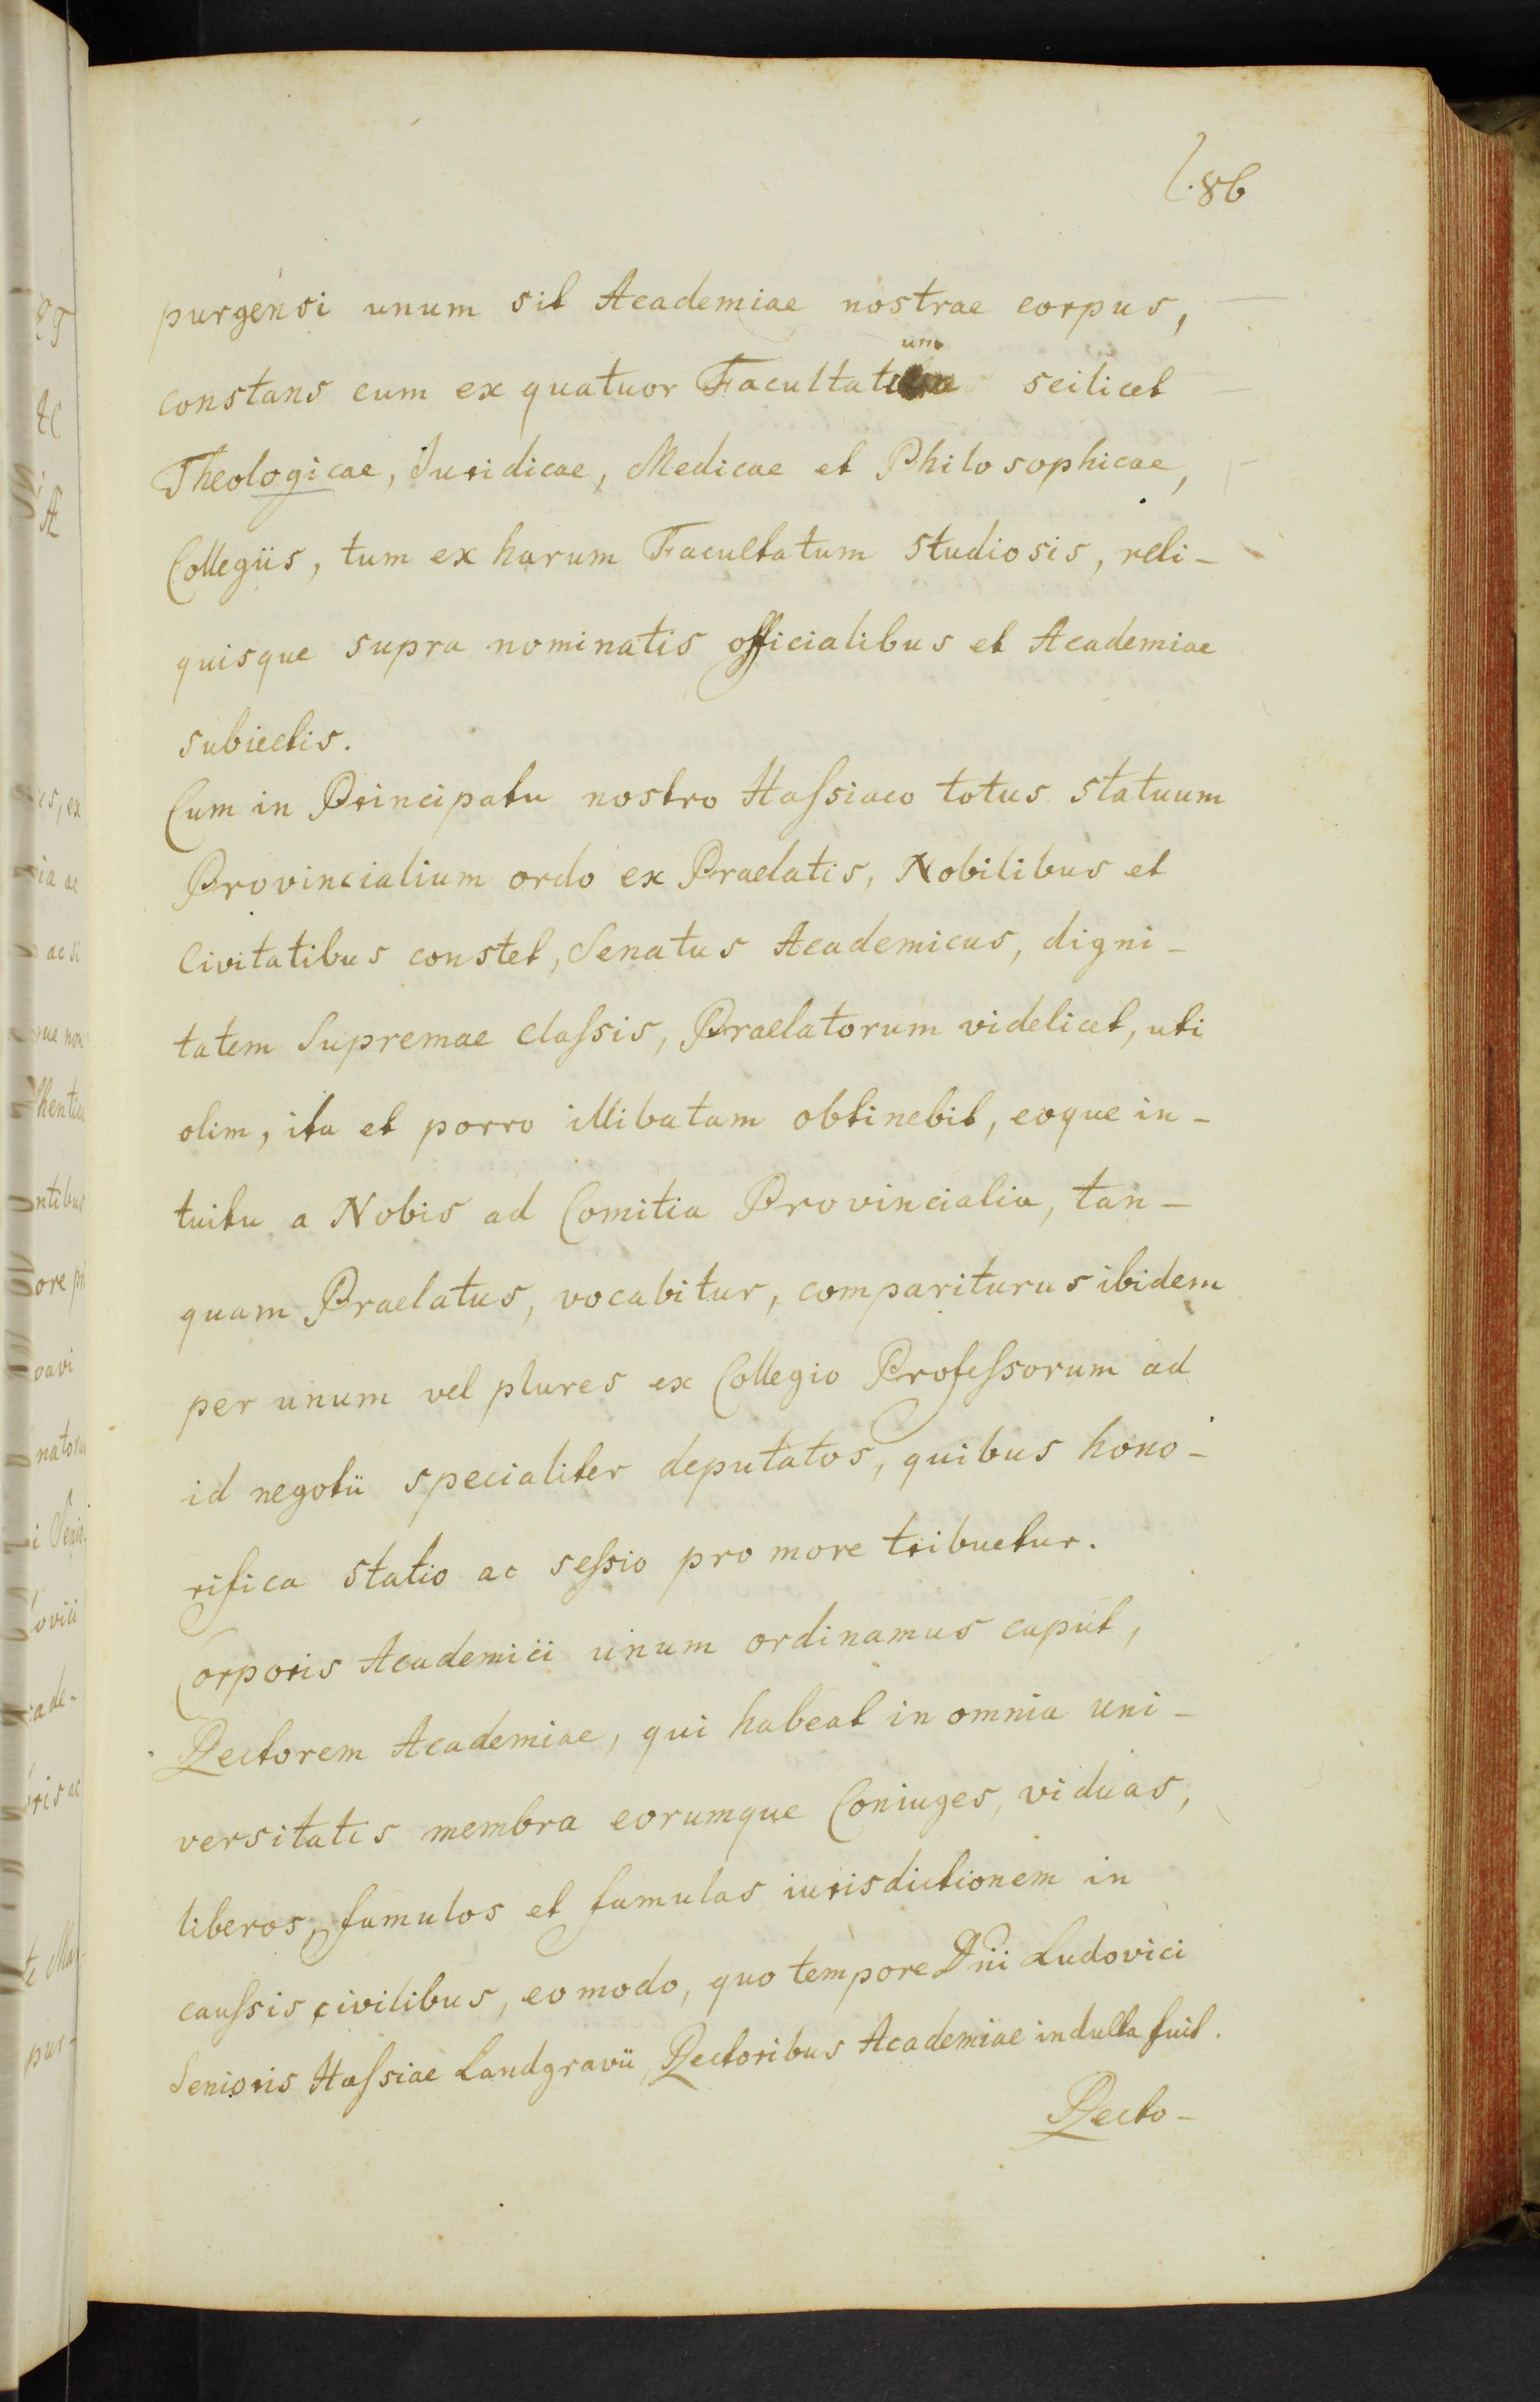 l. 86
purgensi unum sit Academiae nostrae corpus,
um
constans cum ex quatuor Facultat scilicet
Theologicae, Juridicae, Medicae et Philosophicae,
Collegiis, tum ex harum Facultatum studiosis, reli-
quisque supra nominatis officialibus et Academiae
subiectis.
Cum in Principatu nostro Haſsiaco totus statuum
Provincialium ordo ex Praelatis, Nobilibus et
Civitatibus constet, Senatus Academicus, digni-
tatem Supremae claſsis, Praelatorum videlicet, uti
olim, ita et porro illibatam obtinebit, eoque in-
tuitu a Nobis ad Comitia Provincialia, tan-
quam Praelatus, vocabitur, compariturus ibidem
per unum vel plures ex Collegio Profeſsorum ad
id negotii specialiter deputatos, quibus hono-
rifica statio ac seſsio pro more tribuetur.
Corporis Academici unum ordinamus caput,
Rectorem Academiae, qui habeat in omnia uni-
versitatis membra eorumque Coniuges, viduas,
liberos, famulos et famulas iurisdictionem in
cauſsis civilibus, eo modo, quo tempore Dni Ludovici
Senioris Haſsiae Landgravii, Rectoribus Academiae indulta fuit.
Recto-